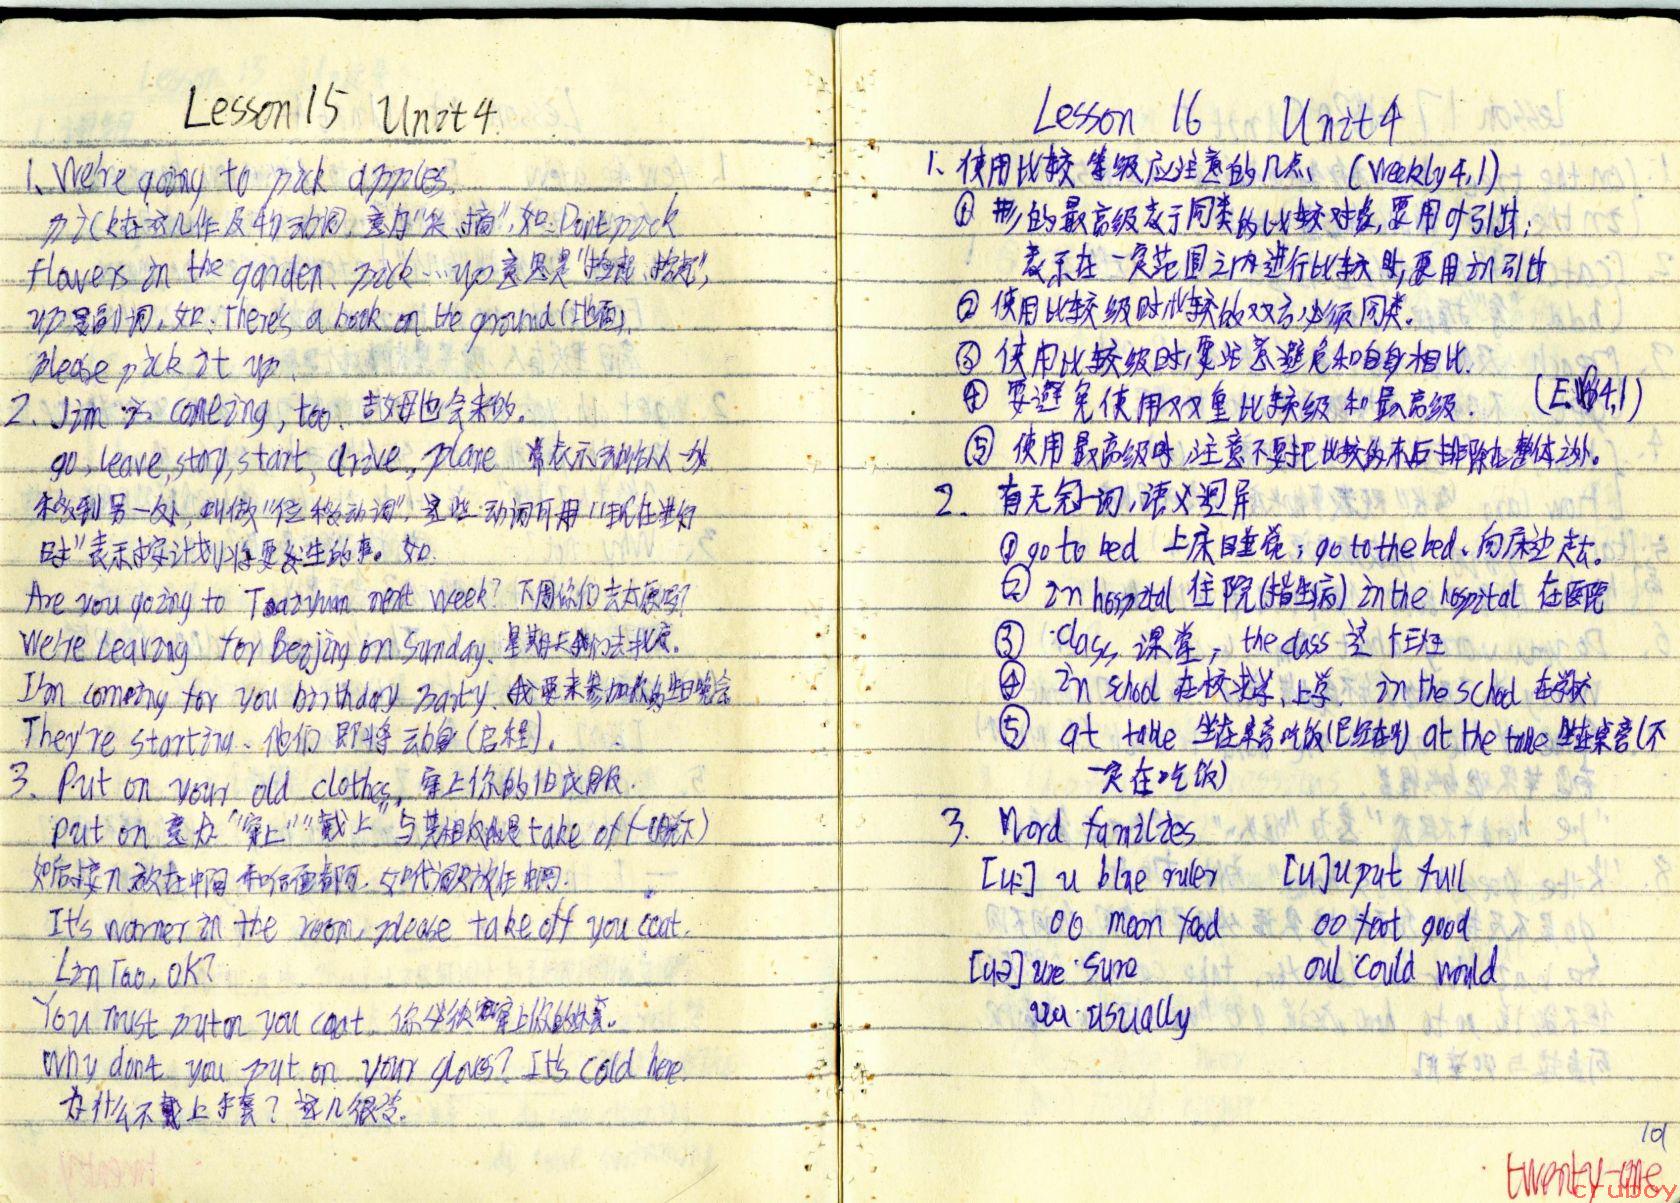 Lesson 15 Unit 4
1、We're going to pick apples.
pick在这儿作及物动词,意为"采,摘",如:Don't pick
flowers in the garden. pick…up意思是"拾起,捡起",
up是副词,如:There's a book on the ground(地面),
please pick it up.
2、Jim is comeing, too. 吉姆也会来的。
go, leave, story, start, drive, plane 常表示动作从一处
移到另一处,叫做"位移动词",这些动词可用"现在进行
时"表示按计划将要发生的事。如:
Are you going to Taiyuan next week? 下周你们去太原吗?
We're leaving for Beijing on Sunday. 星期天我们去北京。
I'm coming for you birthday party. 我要来参加你的生日晚会
They're starting. 他们即将动身(启程)。
3. Put on your old clothes. 穿上你的旧衣服.
put on 意为"穿上""戴上"与其相反的是take off(脱下)
如后接n放在中间和后面都可,如代词只放在中间.
It's warmer in the room, please take off you coat.
Lin Tao, OK?
You must put on you coat. 你必须穿上你的外套。
Why don't you put on your gloves? It's cold here.
为什么不戴上手套?这儿很冷。
Lesson 16 Unit 4
1、使用比较等级应注意的几点 (Weekly 4,1)
① 形的最高级表示同类的比较对象,要用of引出;
表示在一定范围之内进行比较时,要用in引出
② 使用比较级时比较的双方必须同类。
③ 使用比较级时,要注意避免和自身相比.
④ 要避免使用双重比较级和最高级. (E.W4,1)
⑤ 使用最高级时,注意不要把比较的本后排除在整体之外。
2. 有无冠词,语义迥异
① go to bed 上床睡觉; go to the bed、向床边走去。
② in hospital 住院(指生病) in the hospital 在医院
③ class 课堂, the class 这个班
④ in school 在校求学,上学. in the school 在学校
⑤ at table 坐在桌旁吃饭 at the table 坐在桌旁(不
一定在吃饭)
3. Word families
[u:] u blue ruler [u] u put full
oo moon food oo foot good
[uə] ure sure oul could would
ua usually
101
twenty-one
cruboy